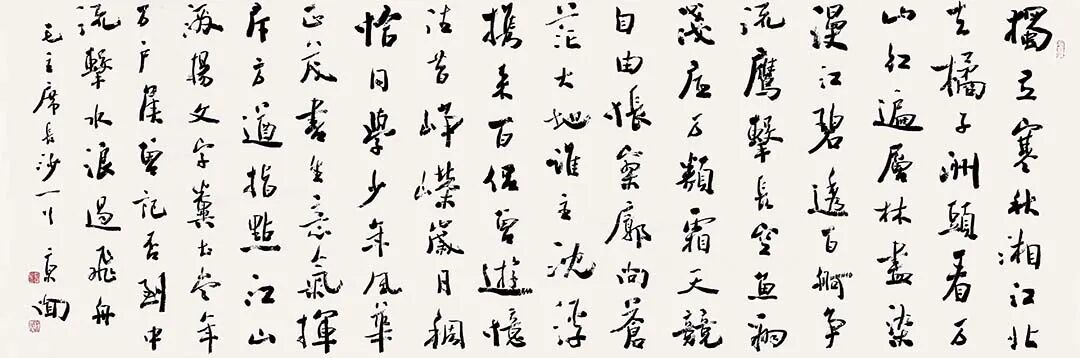 獨立寒秋湘江北
去橘子洲頭看万
山紅遍層林盡染
漫江碧透百舸爭
流鷹擊長空魚翔
淺底万類霜天競
自由悵寥廓問蒼
茫大地誰主沈浮
攜來百侶曾遊憶
往昔崢嶸歲月稠
恰同學少年風華
正茂書生意氣揮
斥方遒指點江山
激揚文字糞土當年
万戶侯曾記否到中
流擊水浪遏飛舟
毛主席長沙一首